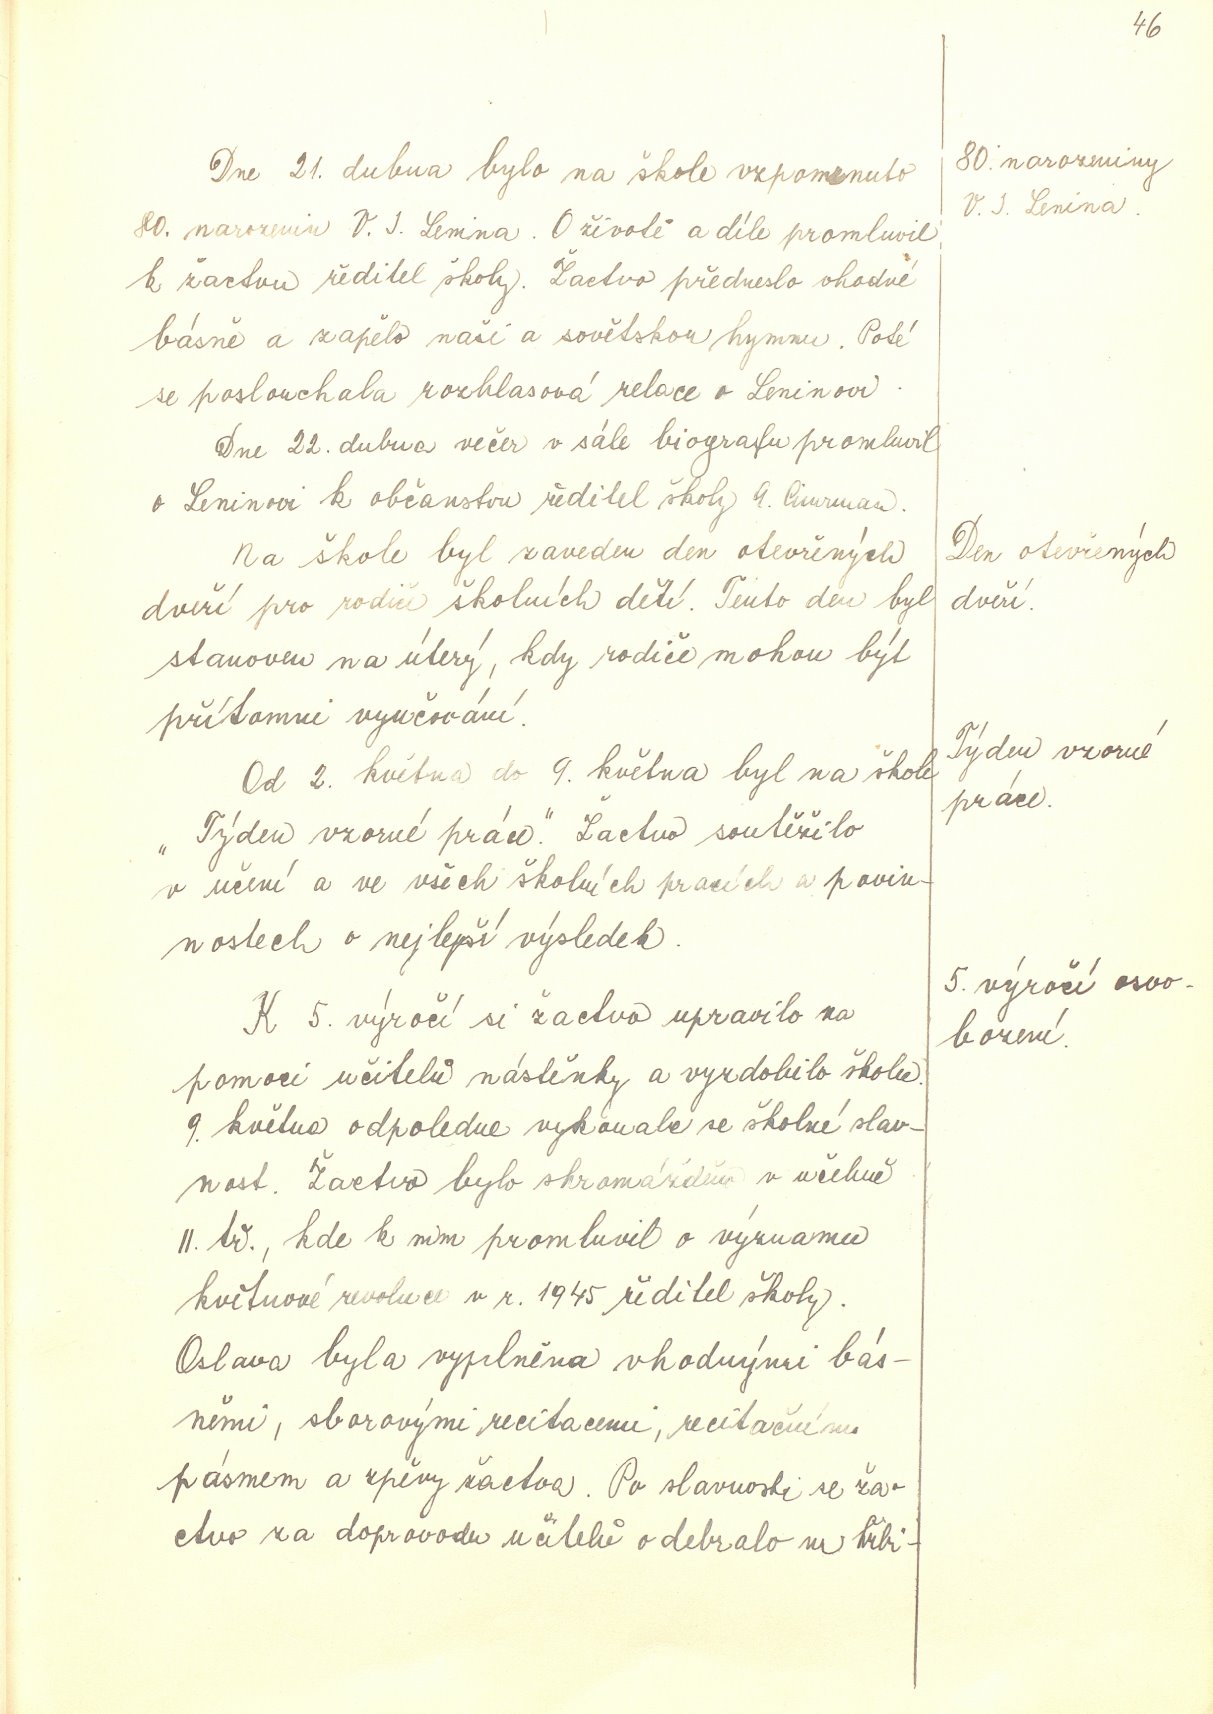 46
Dne 21. dubna bylo na škole vzpomenuto
80. narozenin V. I. Lenina. O životě a díle promluvil
k žactvu ředitel školy. Žactvo předneslo vhodné
básně a zapělo naši a sovětskou hymnu. Poté
se poslouchala rozhlasová relace o Leninovi.
Dne 22. dubna večer v sále biografu promluvil
o Leninovi k občanstvu ředitel školy A. Cimrman.
Na škole byl zaveden den otevřených
dveří pro rodiče školních dětí. Tento den byl
stanoven na úterý, kdy rodiče mohou být
přítomni vyučování.
Od 2. května do 9. května byl na škole
„Týden vzorné práce." Žactvo soutěžilo
v učení a ve všech školních pracích a povin-
nostech o nejlepší výsledek.
K 5. výročí si žactvo upravilo za
pomoci učitelů nástěnky a vyzdobilo školu.
9. května odpoledne vykonala se školní slav-
nost. Žactvo bylo shromážděno v učebně
II. tř., kde k nim promluvil o významu
květnové revoluce v r. 1945 ředitel školy.
Oslava byla vyplněna vhodnými bás-
němi, sborovými recitacemi, recitačním
pásmem a zpěvy žactva. Po slavnosti se ža-
ctvo za doprovodu učitelů odebralo na hřbi-
80. narozeniny
V. I. Lenina.
Den otevřených
dveří.
Týden vzorné
práce.
5. výročí osvo-
bození.